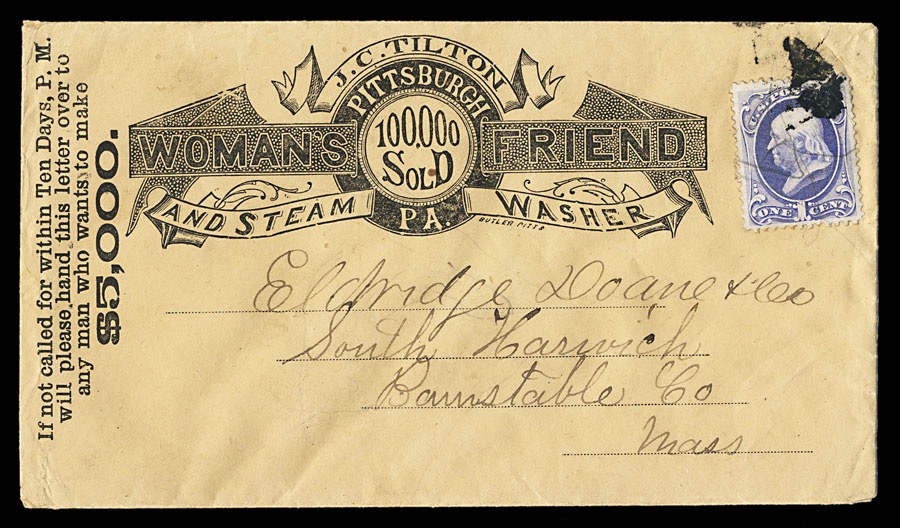 If not called for within Ten Days, P. M.
will please hand this letter over to
any man who wants to make
$5,000.
J. C. TILTON
PITTSBURGH
100,000
SOLD
PA.
WOMAN'S FRIEND
AND STEAM WASHER
BUTLER PITTS
U.S. POSTAGE
ONE 1 CENT
Eldridge Doane & Co
South Harwich
Barnstable Co
Mass